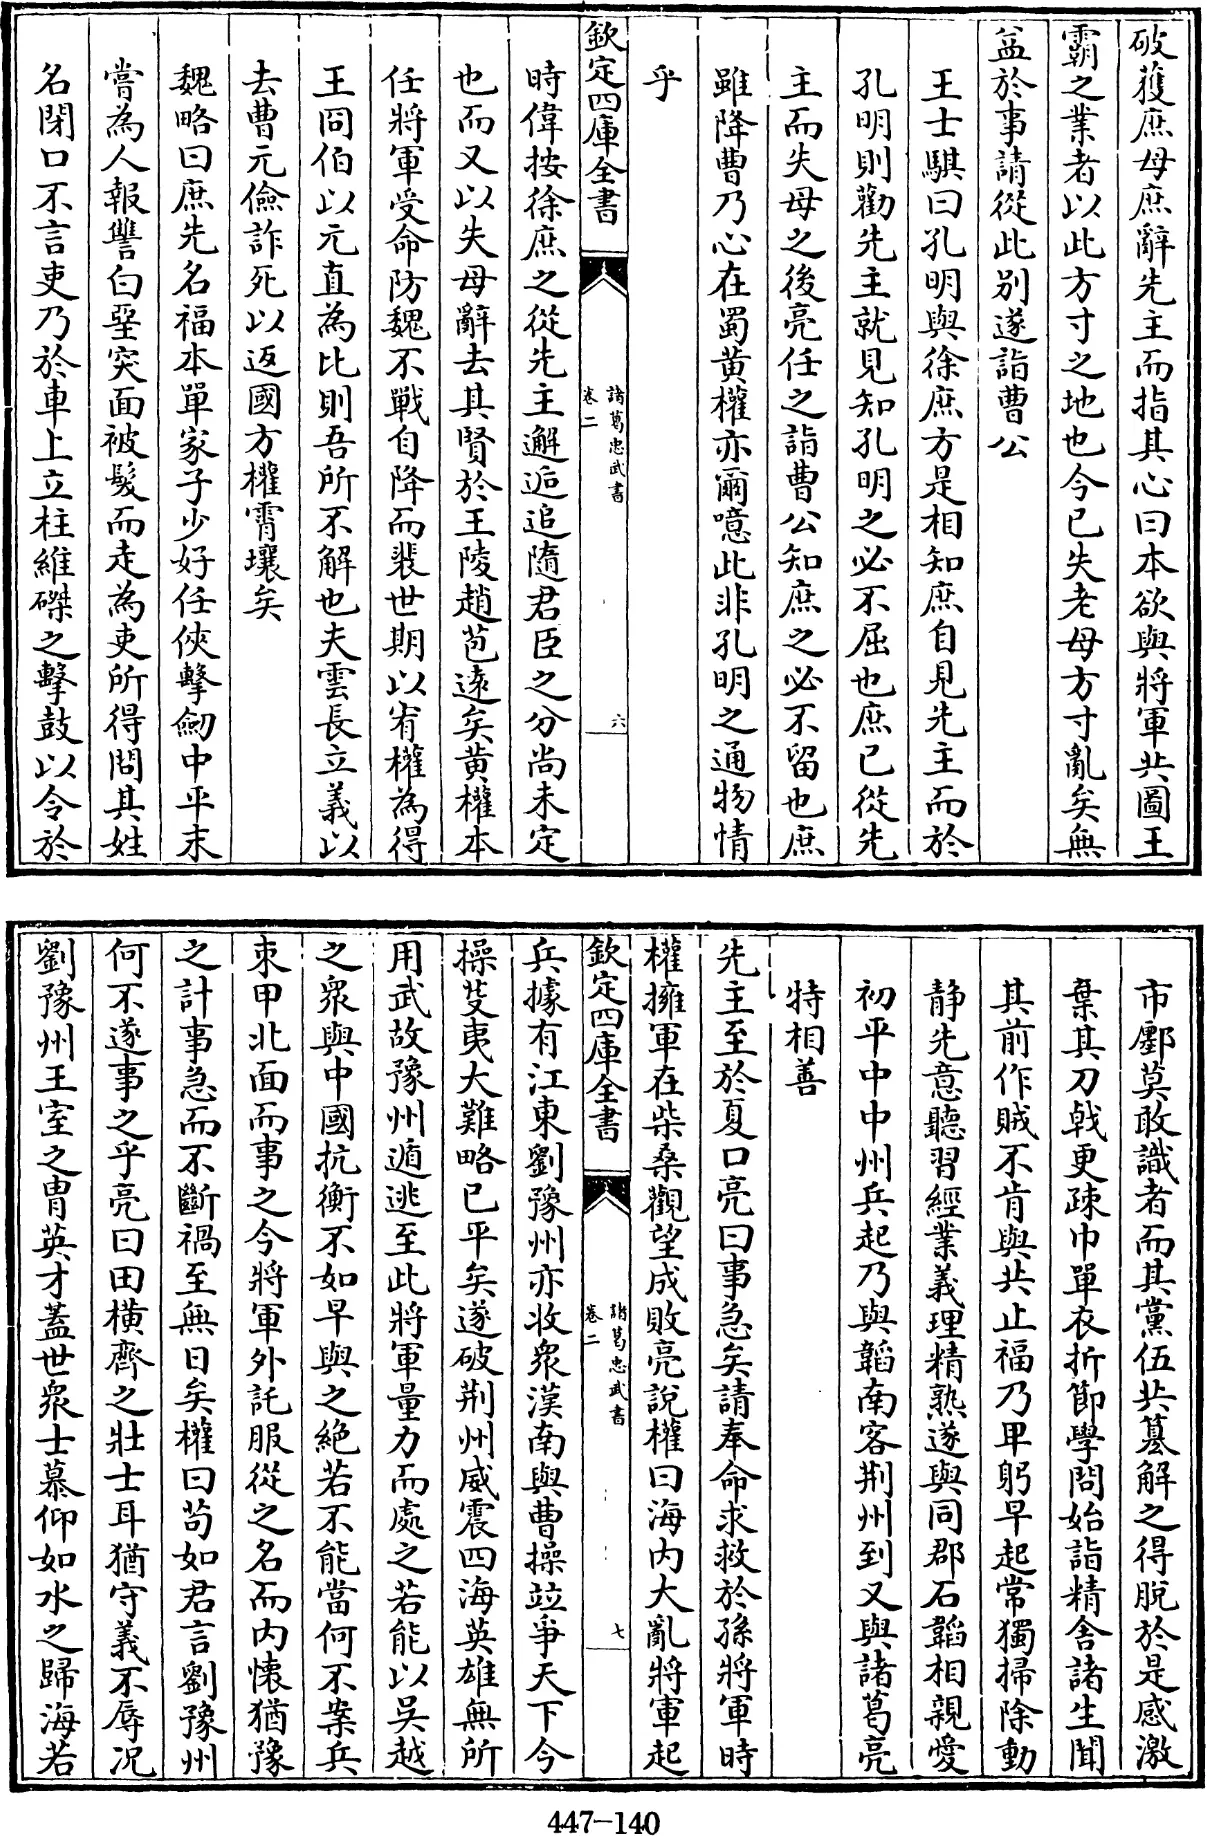 破獲庶母庶辭先主而指其心曰本欲與將軍共圖王
霸之業者以此方寸之地也今已失老母方寸亂矣無
益於事請從此別遂詣曹公
王士騏曰孔明與徐庶方是相知庶自見先主而於
孔明則勸先主就見知孔明之必不屈也庶已從先
主而失母之後亮任之詣曹公知庶之必不留也庶
雖降曹乃心在蜀黃權亦爾噫此非孔明之通物情
乎
欽定四庫全書
諸葛忠武書
卷二
六
時偉按徐庶之從先主邂逅追隨君臣之分尚未定
也而又以失母辭去其賢於王陵趙苞遠矣黃權本
任將軍受命防魏不戰自降而裴世期以宥權為得
王冏伯以元直為比則吾所不解也夫雲長立義以
去曹元儉詐死以返國方權霄壤矣
魏略曰庶先名福本單家子少好任俠擊劍中平末
嘗為人報讐白堊突面被髮而走為吏所得問其姓
名閉口不言吏乃於車上立柱維磔之擊鼓以令於
市鄽莫敢識者而其黨伍共篡解之得脫於是感激
棄其刀戟更疎巾單衣折節學問始詣精舍諸生聞
其前作賊不肯與共止福乃卑躬早起常獨掃除動
靜先意聽習經業義理精熟遂與同郡石韜相親愛
初平中中州兵起乃與韜南客荆州到又與諸葛亮
特相善
先主至於夏口亮曰事急矣請奉命求救於孫將軍時
權擁軍在柴桑觀望成敗亮說權曰海內大亂將軍起
欽定四庫全書
諸葛忠武書
卷二
七
兵據有江東劉豫州亦收衆漢南與曹操竝爭天下今
操芟夷大難略已平矣遂破荆州威震四海英雄無所
用武故豫州遁逃至此將軍量力而處之若能以吳越
之衆與中國抗衡不如早與之絕若不能當何不案兵
束甲北面而事之今將軍外託服從之名而內懷猶豫
之計事急而不斷禍至無日矣權曰苟如君言劉豫州
何不遂事之乎亮曰田橫齊之壯士耳猶守義不辱况
劉豫州王室之胄英才蓋世衆士慕仰如水之歸海若
447-140